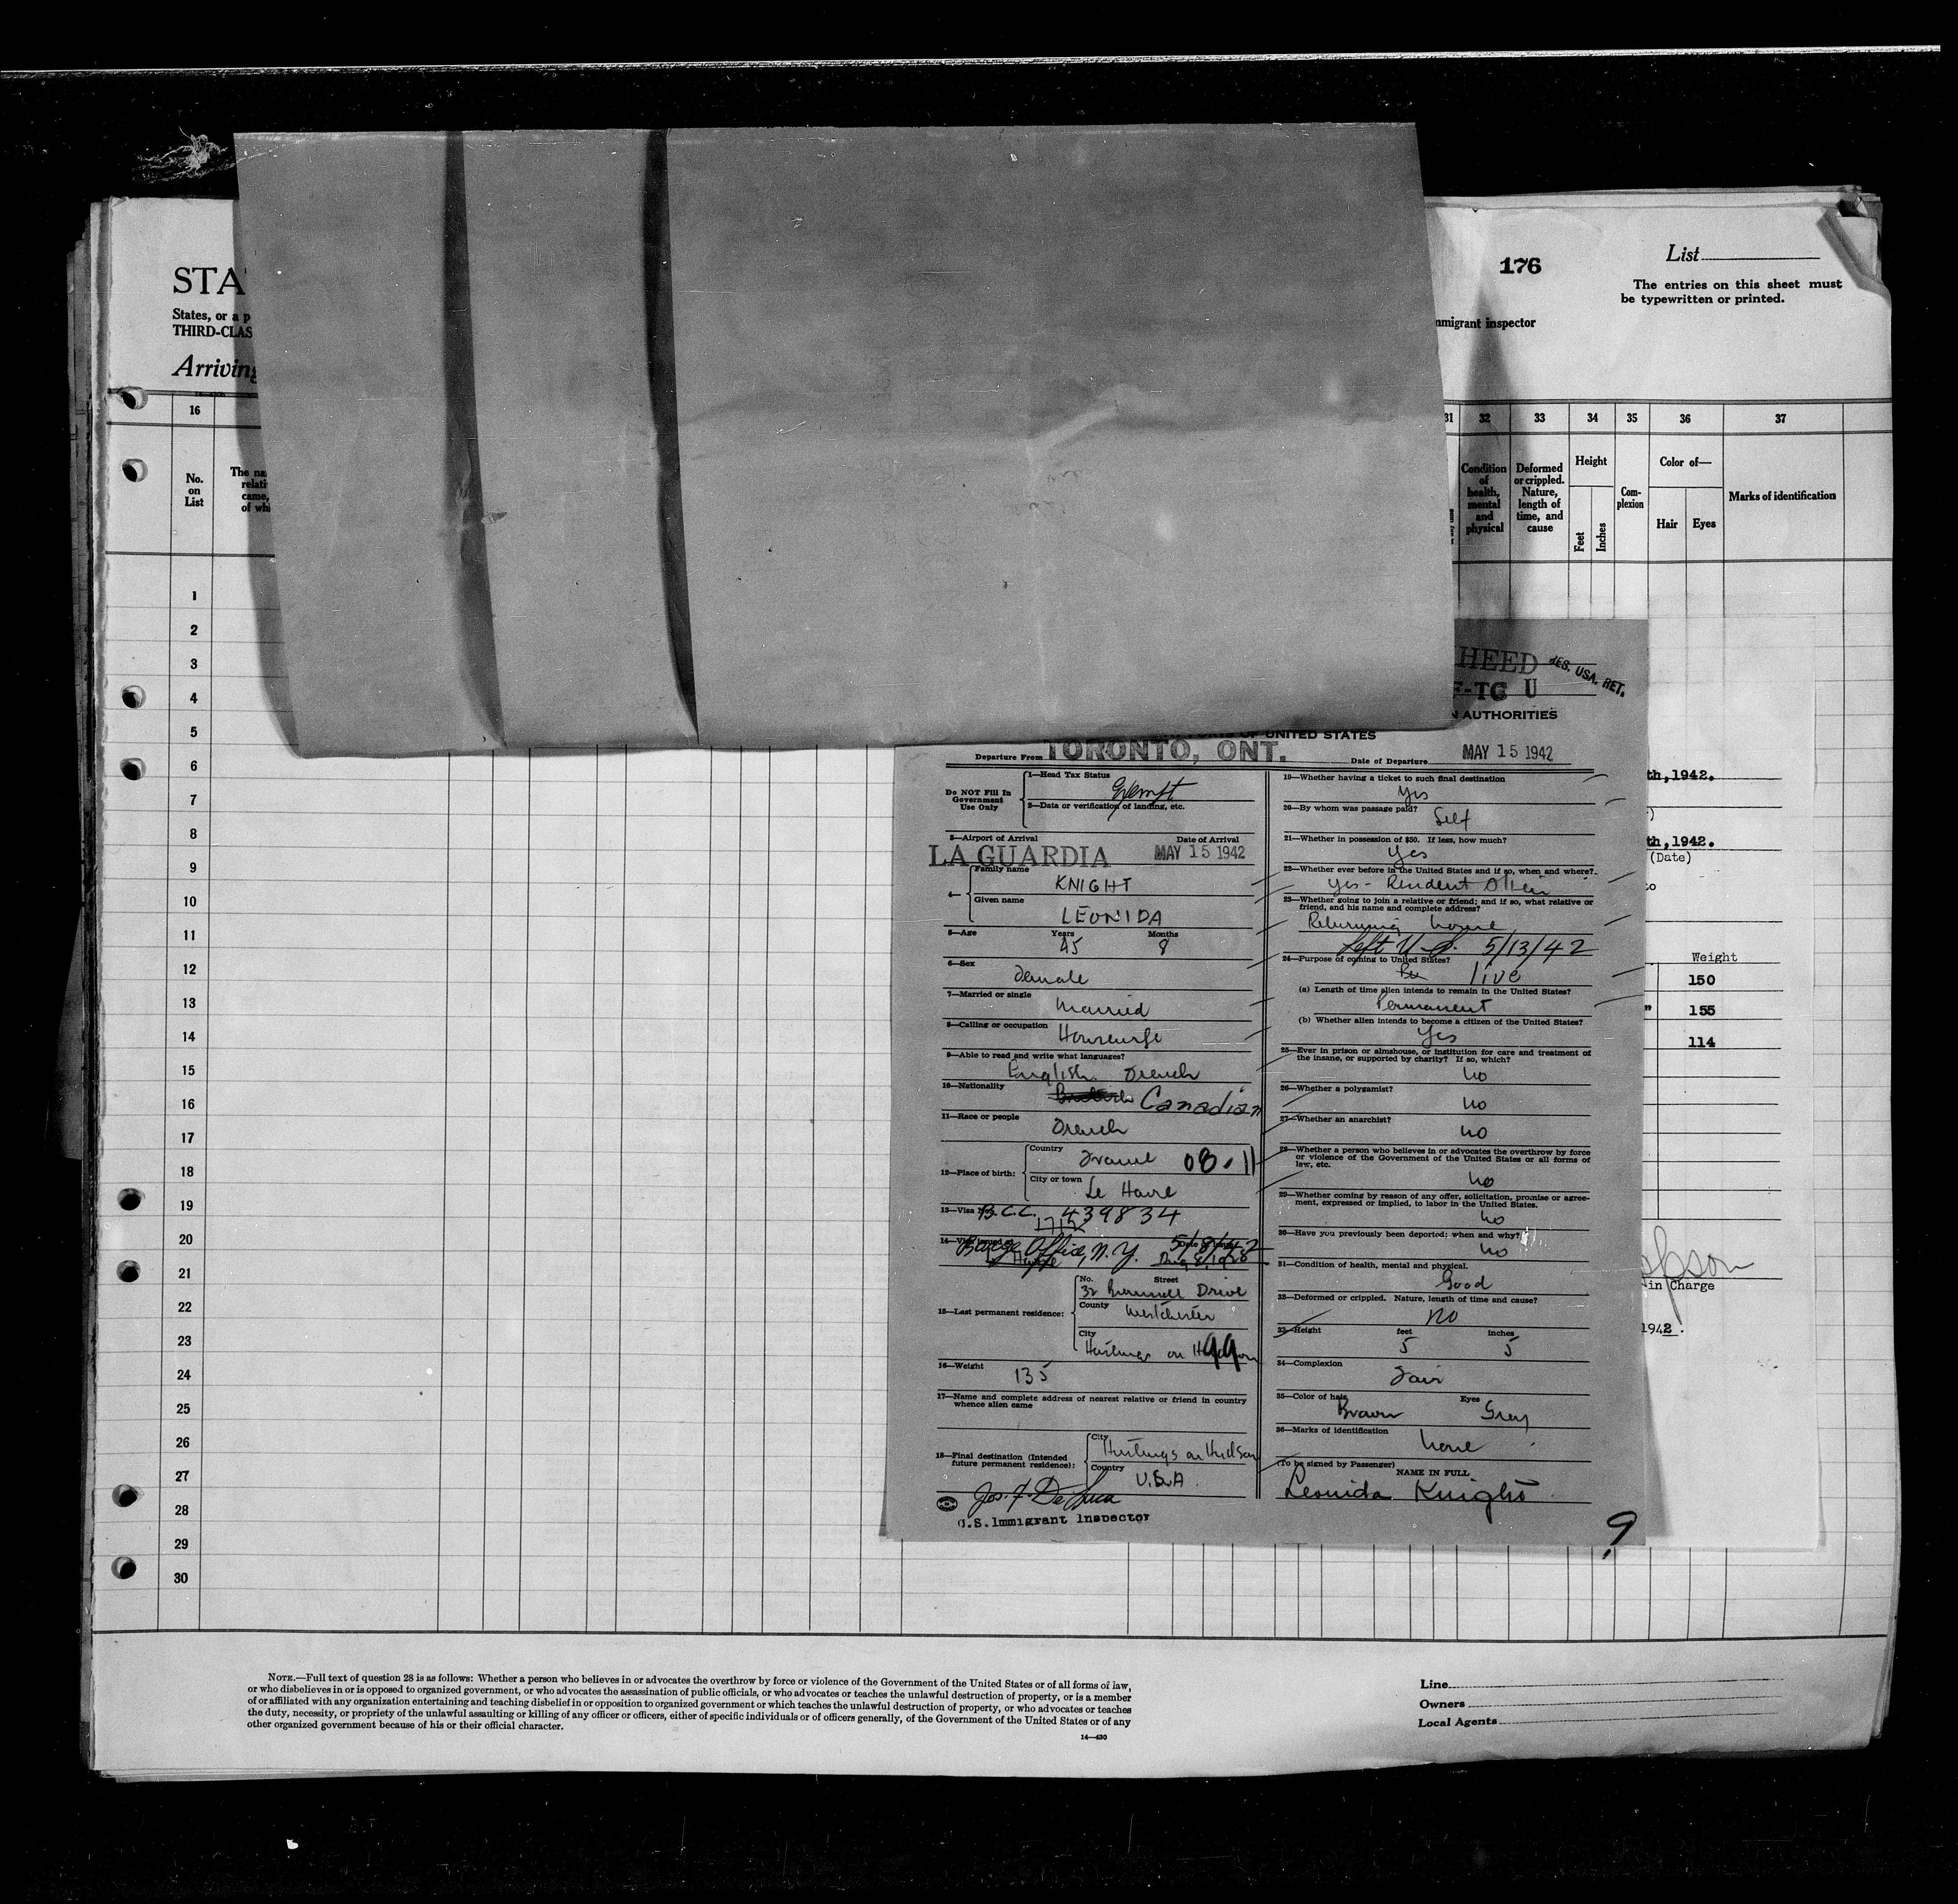 STA
States, or a p
THIRD-CLAS
Arriving
176
List
The entries on this sheet must
be typewritten or printed.
mmigrant inspector
16
31 32 33 34 35 36 37
No.
on
List
The na
relati
came,
of whi
Condition
of
health,
mental
and
physical
Deformed
or crippled.
Nature,
length of
time, and
cause
Height
Feet
Inches
Com-
plexion
Color of—
Hair Eyes
Marks of identification
1
2
3
4
5
6
7
8
9
10
11
12
13
14
15
16
17
18
19
20
21
22
23
24
25
26
27
28
29
30
HEED
RES. USA. RET.
F-TC U
N AUTHORITIES
OF UNITED STATES
Departure From TORONTO, ONT.
Date of Departure MAY 15 1942
Do NOT Fill In
Government
Use Only
1—Head Tax Status
Exempt
2—Data or verification of landing, etc.
3—Airport of Arrival Date of Arrival
LA GUARDIA MAY 15 1942
4—
Family name
KNIGHT
Given name
LEONIDA
5—Age Years Months
45 8
6—Sex
Female
7—Married or single
Married
8—Calling or occupation
Housewife
9—Able to read and write what languages?
English French
10—Nationality
British Canadian
11—Race or people
French
12—Place of birth:
Country
France 08.11
City or town
Le Havre
13—Visa No.
B.C.C. 439834
1712
14—Visa issued at Date of Issue
Barge Office, N.Y. 5/8/42
Le Havre Aug 8, 1928
15—Last permanent residence:
No. Street
32 Drive
County
Westchester
City
Hastings on Hudson 99
16—Weight
135
17—Name and complete address of nearest relative or friend in country
whence alien came
18—Final destination (Intended
future permanent residence):
City
Hastings on Hudson
Country
U.S.A.
Jos. F. De Luca
U.S. Immigrant Inspector
19—Whether having a ticket to such final destination
Yes
20—By whom was passage paid?
Self
21—Whether in possession of $50. If less, how much?
Yes
22—Whether ever before in the United States and if so, when and where?
Yes - Resident
23—Whether going to join a relative or friend; and if so, what relative or
friend, and his name and complete address?
Returning home
Left U.S. 5/13/42
24—Purpose of coming to United States?
live
(a) Length of time alien intends to remain in the United States?
Permanent
(b) Whether alien intends to become a citizen of the United States?
Yes
25—Ever in prison or almshouse, or institution for care and treatment of
the insane, or supported by charity? If so, which?
No
26—Whether a polygamist?
No
27—Whether an anarchist?
No
28—Whether a person who believes in or advocates the overthrow by force
or violence of the Government of the United States or all forms of
law, etc.
No
29—Whether coming by reason of any offer, solicitation, promise or agree-
ment, expressed or implied, to labor in the United States.
No
30—Have you previously been deported; when and why?
No
31—Condition of health, mental and physical.
Good
32—Deformed or crippled. Nature, length of time and cause?
No
33—Height feet inches
5 5
34—Complexion
Fair
35—Color of hair Eyes
Brown Grey
36—Marks of identification
None
(To be signed by Passenger)
NAME IN FULL
Leonida Knight
9
th, 1942.
th, 1942.
(Date)
to
Weight
150
" 155
114
in Charge
1942.
NOTE.—Full text of question 28 is as follows: Whether a person who believes in or advocates the overthrow by force or violence of the Government of the United States or of all forms of law,
or who disbelieves in or is opposed to organized government, or who advocates the assassination of public officials, or who advocates or teaches the unlawful destruction of property, or is a member
of or affiliated with any organization entertaining and teaching disbelief in or opposition to organized government or which teaches the unlawful destruction of property, or who advocates or teaches
the duty, necessity, or propriety of the unlawful assaulting or killing of any officer or officers, either of specific individuals or of officers generally, of the Government of the United States or of any
other organized government because of his or their official character.
14—430
Line
Owners
Local Agents